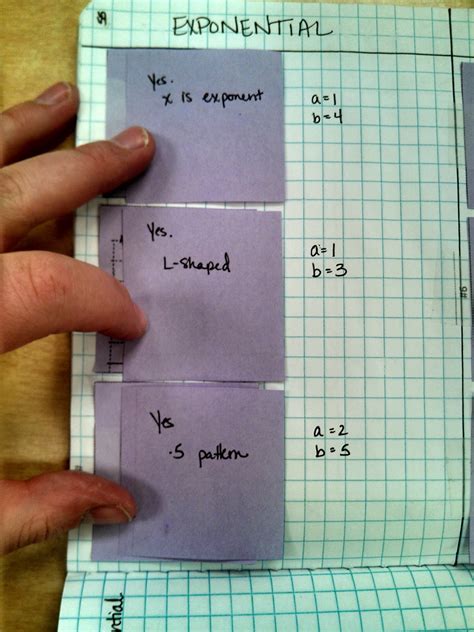 EXPONENTIAL
Yes.
x is exponent
a=1
b=4
Yes.
L-shaped
a=1
b=3
Yes
·5 pattern
a=2
b=5
ntial